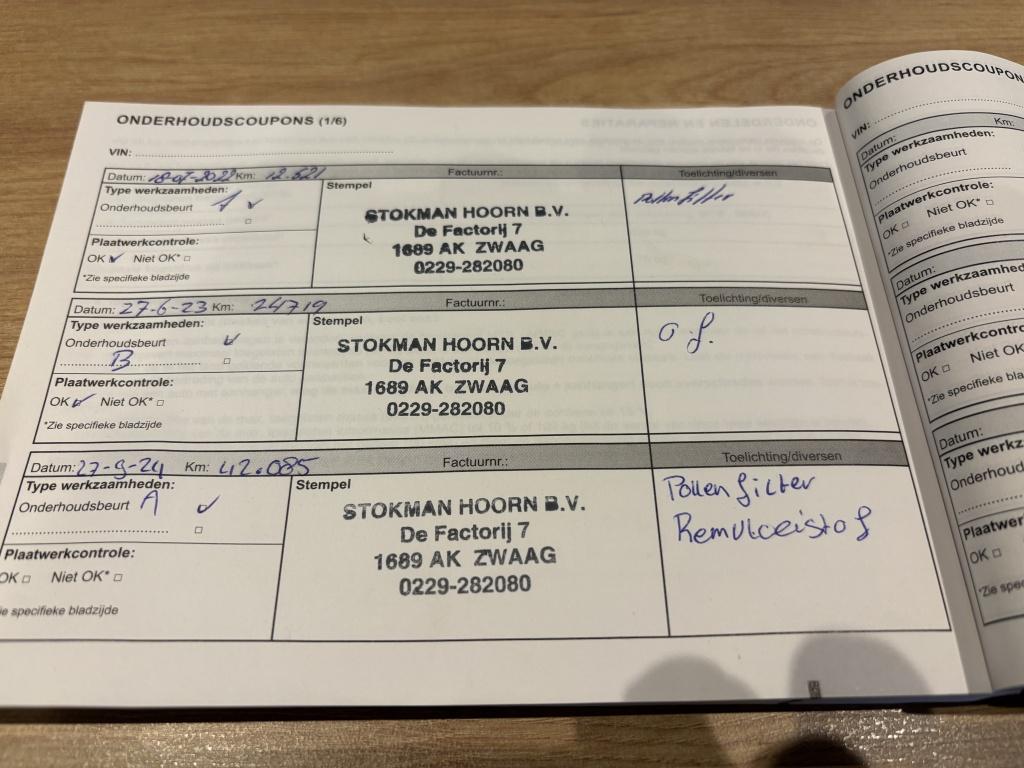 ONDERHOUDSCOUPONS (1/6)
VIN:
Datum: 18-07-2022 Km: 12.621 Factuurnr.: Toelichting/diversen
Type werkzaamheden:
Onderhoudsbeurt A
Plaatwerkcontrole:
OK Niet OK*
*Zie specifieke bladzijde
Stempel
STOKMAN HOORN B.V.
De Factorij 7
1689 AK ZWAAG
0229-282080
Pollenfilter
Datum: 27-6-23 Km: 24719 Factuurnr.: Toelichting/diversen
Type werkzaamheden:
Onderhoudsbeurt
B
Plaatwerkcontrole:
OK Niet OK*
*Zie specifieke bladzijde
Stempel
STOKMAN HOORN B.V.
De Factorij 7
1689 AK ZWAAG
0229-282080
o f.
Datum: 27-9-24 Km: 42.085 Factuurnr.: Toelichting/diversen
Type werkzaamheden:
Onderhoudsbeurt A
Plaatwerkcontrole:
OK Niet OK*
ie specifieke bladzijde
Stempel
STOKMAN HOORN B.V.
De Factorij 7
1689 AK ZWAAG
0229-282080
Pollenfilter
Remvloeistof
ONDERHOUDSCOUPON
VIN:
Datum: Km:
Type werkzaamheden:
Onderhoudsbeurt
Plaatwerkcontrole:
OK Niet OK*
*Zie specifieke bladzijde
Datum:
Type werkzaamhed
Onderhoudsbeurt
Plaatwerkcontro
OK Niet OK
*Zie specifieke bladz
Datum:
Type werkz
Onderhoud
Plaatwer
OK
*Zie spe